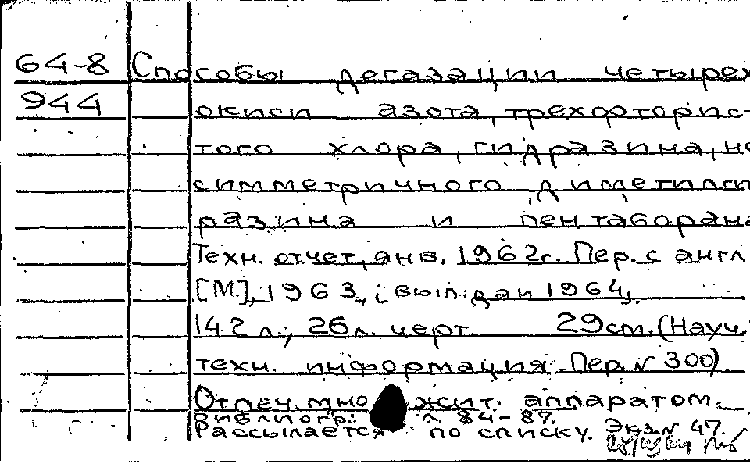 64-8 Способы дегазации четырех
944 окиси азота, трехфторис-
того хлора, гидразина, не
симметричного диметилги
разина и пентаборана
Техн. отчет, янв. 1962г. Пер. с англ
[М], 1963, вып. дан 1964,
142 л., 26 л. черт 29см. (Науч.
техн. информация. Пер. № 300)
Отпеч. множит. аппаратом.
Библиогр.: л. 84-87.
Рассылается по списку. Экз. № 47.